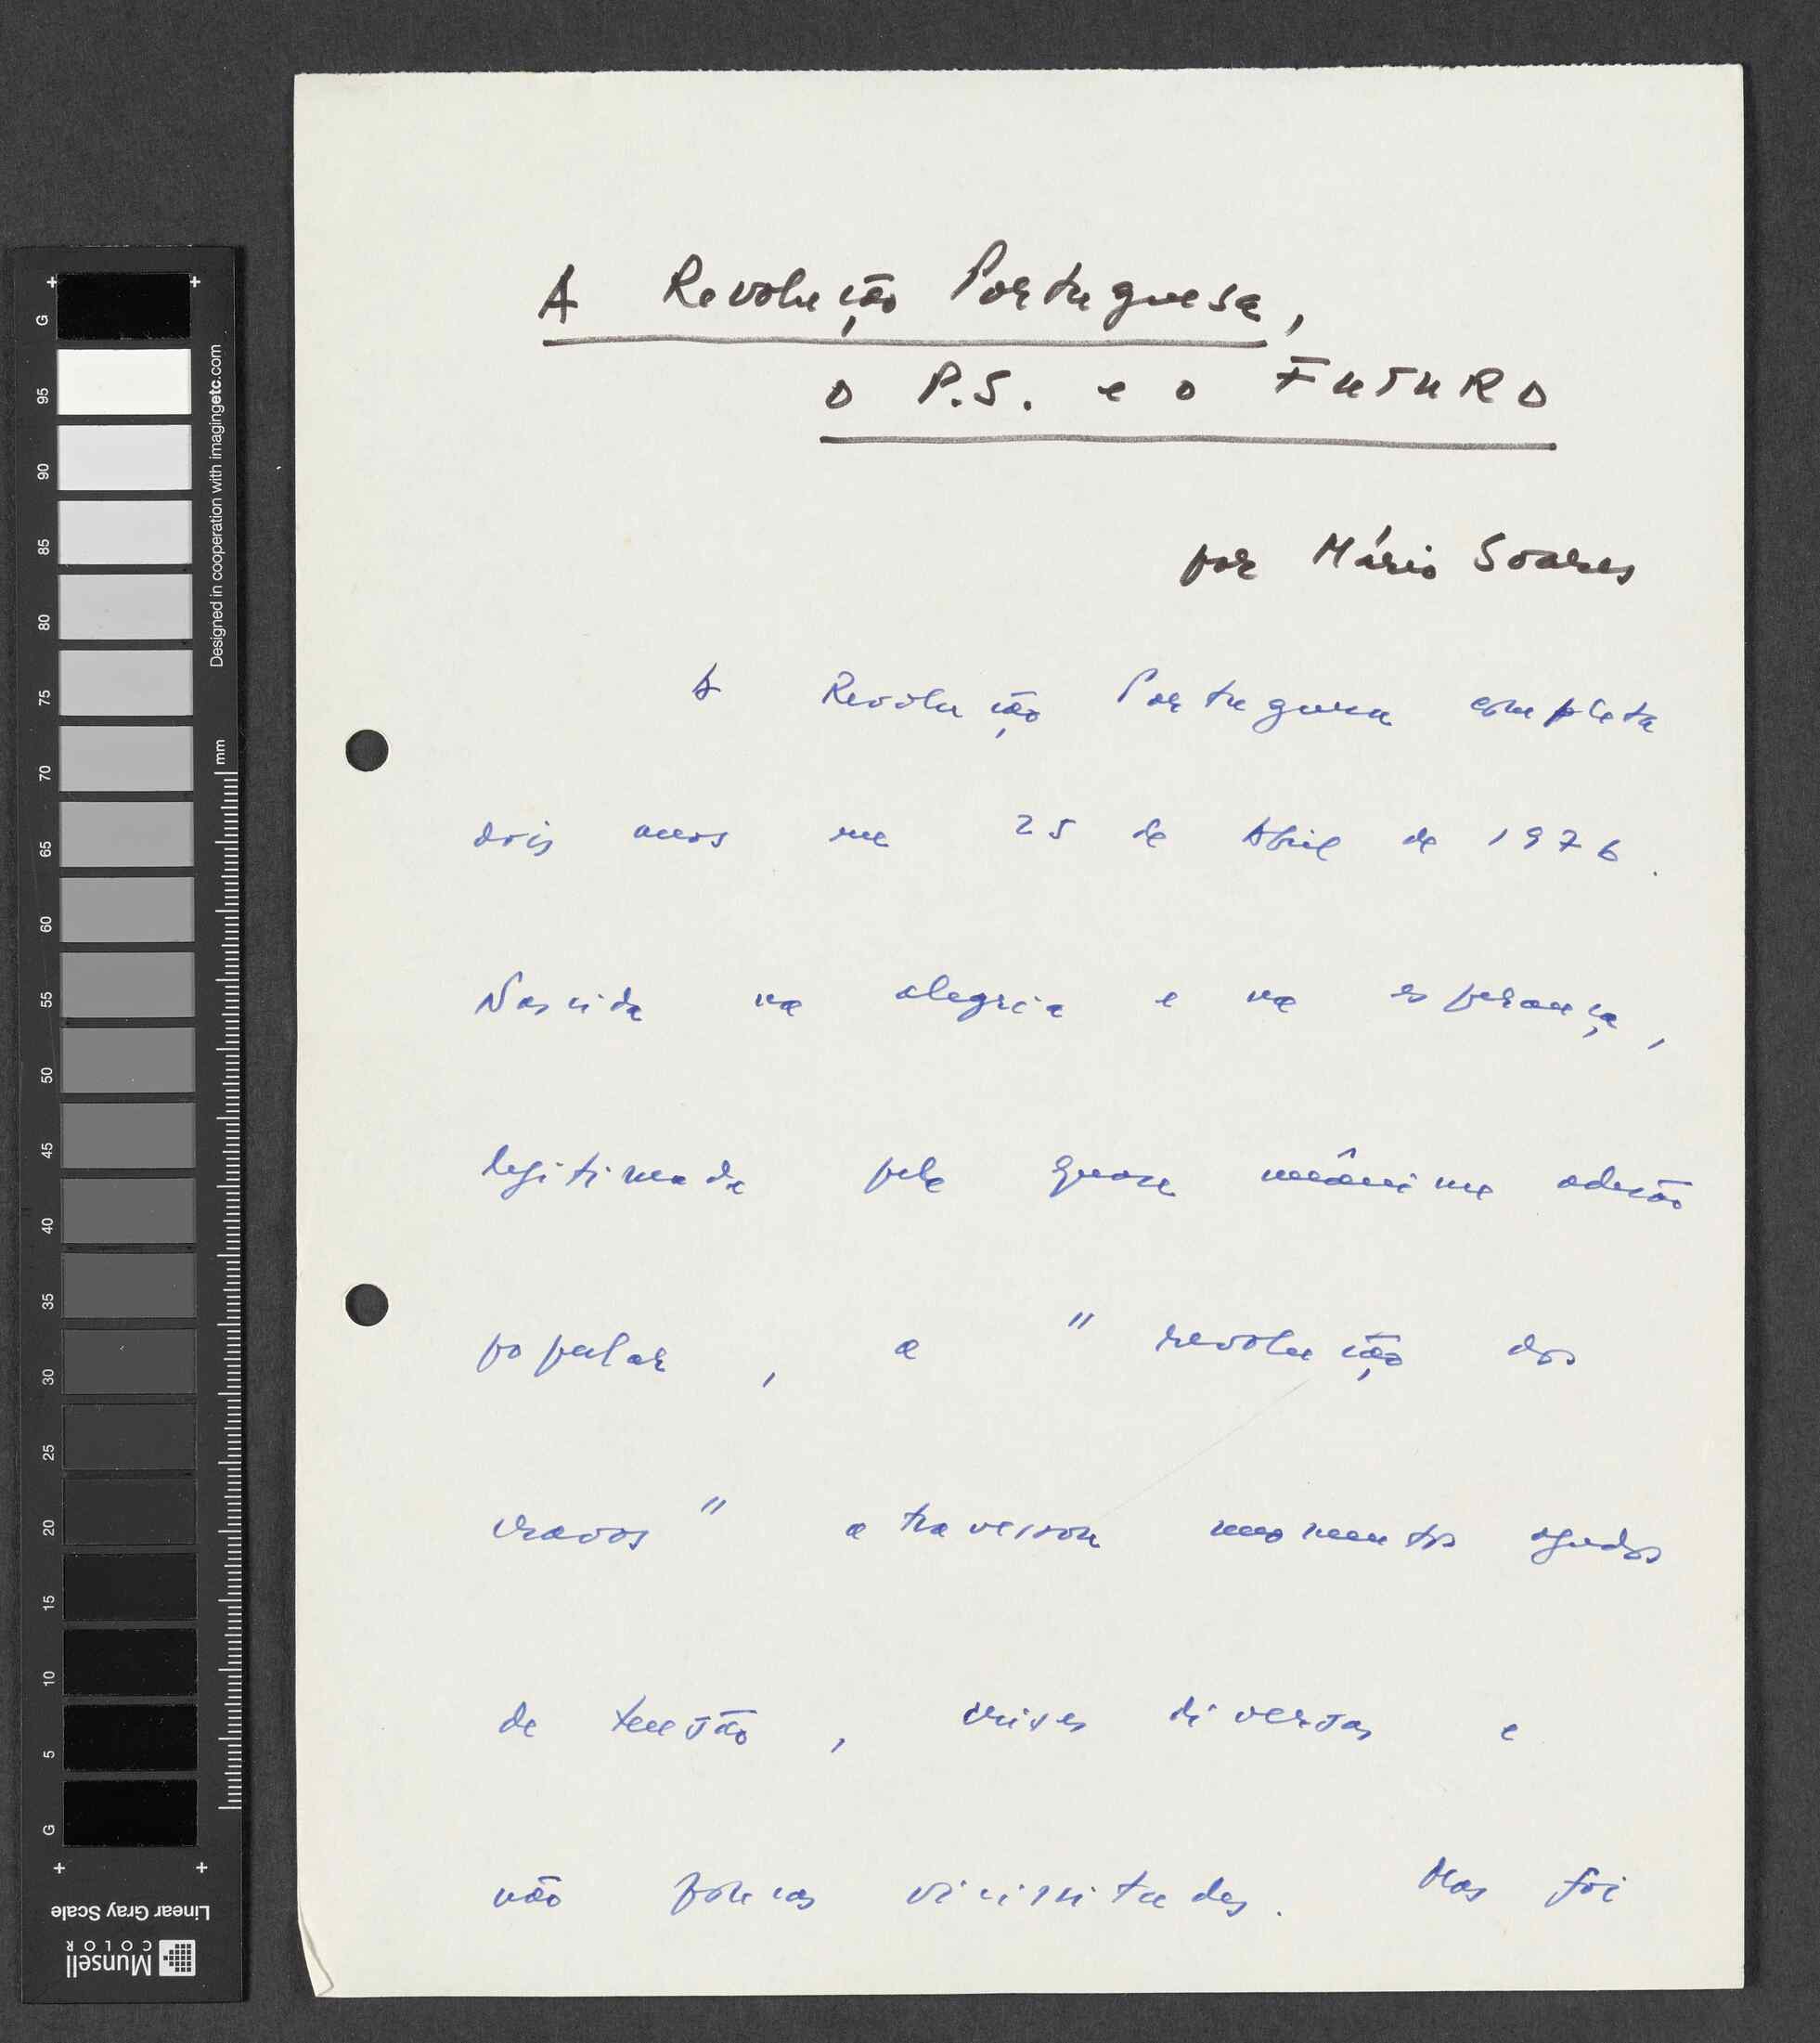 A Revolução Portuguesa,
o P.S. e o FUTURO
por Mário Soares
A Revolução Portuguesa completa
dois anos em 25 de Abril de 1976.
Nascida na alegria e na esperança,
legitimada pela quase unânime adesão
popular, a "revolução dos
cravos" atravessou momentos agudos
de tensão, crises diversas e
não poucas vicissitudes. Mas foi
G
95
90
85
80
75
70
65
60
55
50
45
40
35
30
25
20
15
10
5
G
Designed in cooperation with imagingetc.com
mm
Linear Gray Scale
Munsell
COLOR